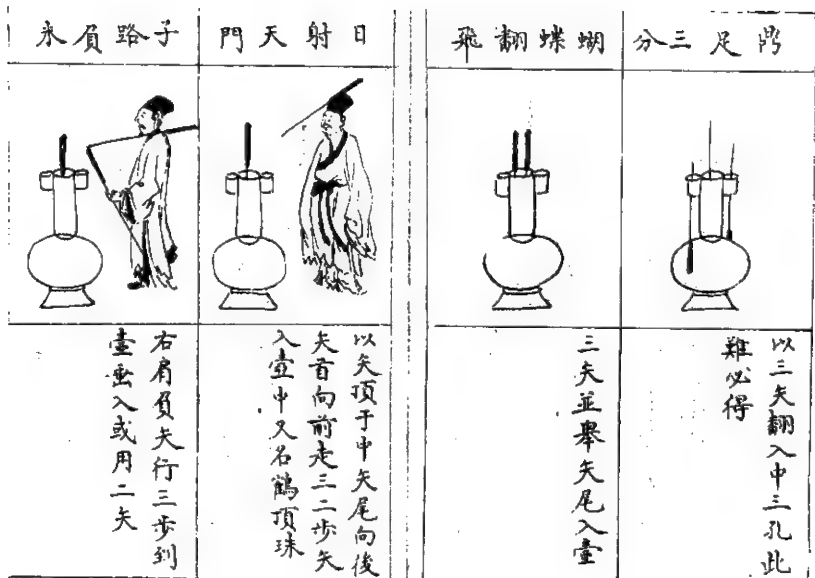 鼎足三分
以三矢翻入中三孔此
難必得
蝴蝶翻飛
三矢並舉矢尾入壺
日射天門
以矢頂于中矢尾向後
矢首向前走三二步矢
入壺中又名鶴頂珠
子路負米
右肩負矢行三步到
壺垂入或用二矢